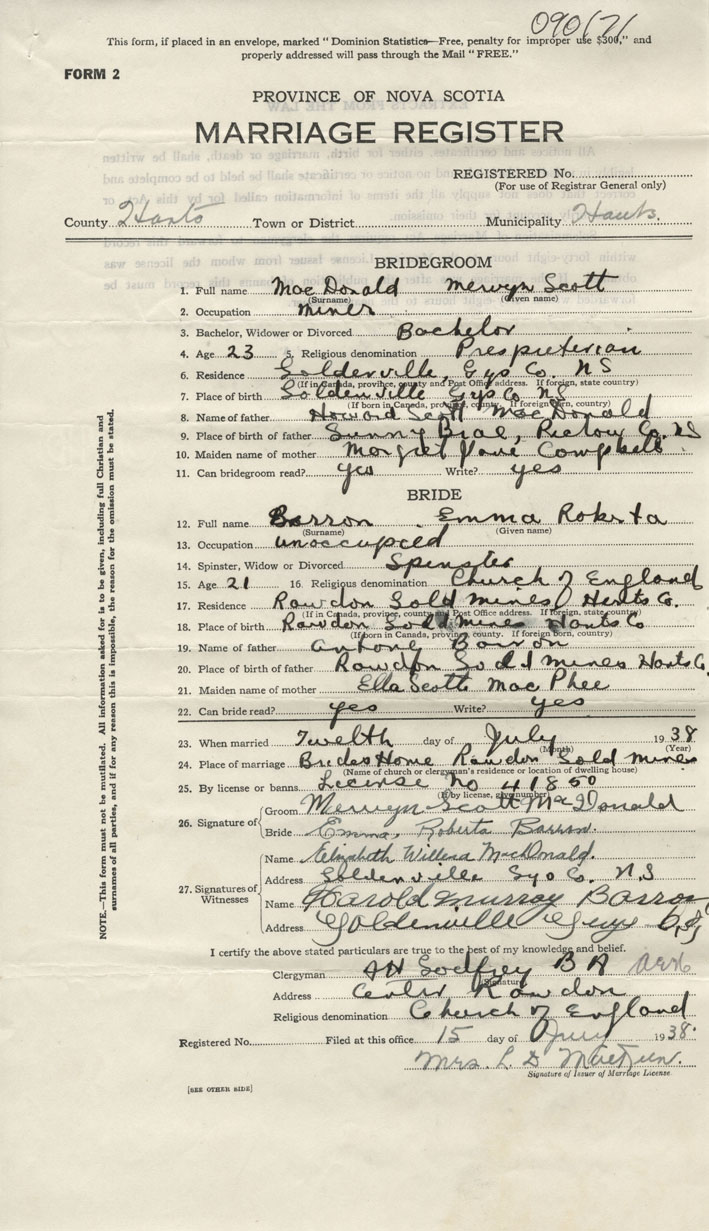 09071
This form, if placed in an envelope, marked "Dominion Statistics—Free, penalty for improper use $300," and
properly addressed will pass through the Mail "FREE."
FORM 2
PROVINCE OF NOVA SCOTIA
MARRIAGE REGISTER
REGISTERED No.
(For use of Registrar General only)
County Hants Town or District Municipality Hants.
BRIDEGROOM
1. Full name MacDonald Mervyn Scott
(Surname) (Given name)
2. Occupation miner
3. Bachelor, Widower or Divorced Bachelor
4. Age 23 5. Religious denomination Prespieterian
6. Residence Goldenville, Gys Co. NS
(If in Canada, province, county and Post Office address. If foreign, state country)
7. Place of birth Goldenville Gys Co NS
(If born in Canada, province, county. If foreign born, country)
8. Name of father Howard Scott MacDonald
9. Place of birth of father Sunny Brae, Pictow Co. NS
10. Maiden name of mother Morgret Jane Campbell
11. Can bridegroom read? yes Write? yes
BRIDE
12. Full name Barron Emma Roberta
(Surname) (Given name)
13. Occupation unoccupied
14. Spinster, Widow or Divorced Spinster
15. Age 21 16. Religious denomination Church of England
17. Residence Rawdon Gold Mines Hants Co.
(If in Canada, province, county and Post Office address. If foreign, state country)
18. Place of birth Rawdon Gold Mines Hants Co
(If born in Canada, province, county. If foreign born, country)
19. Name of father Antony Barron
20. Place of birth of father Rawdon Gold Mines Hants Co.
21. Maiden name of mother Ella Scott MacPhee
22. Can bride read? yes Write? yes
23. When married Twelth day of July 1938
(Month) (Year)
24. Place of marriage Brides Home Rawdon Gold Mines
(Name of church or clergyman's residence or location of dwelling house)
25. By license or banns License No 41850
(If by license, give number)
26. Signature of Groom Mervyn Scott MacDonald
Bride Emma, Roberta Barron.
27. Signatures of Witnesses Name Elizabeth Willena MacDonald.
Address Goldenville Gys Co. N.S
Name Harold Murray Barron
Address Goldenville Guys Co,
I certify the above stated particulars are true to the best of my knowledge and belief.
Clergyman AH Godfrey BA
(Signature)
Address Center Rawdon
Religious denomination Church of England
Registered No. Filed at this office 15 day of July 1938.
Mrs. L D
Signature of Issuer of Marriage License
[SEE OTHER SIDE]
NOTE.—This form must not be mutilated. All information asked for is to be given, including full Christian and
surnames of all parties, and if for any reason this is impossible, the reason for the omission must be stated.